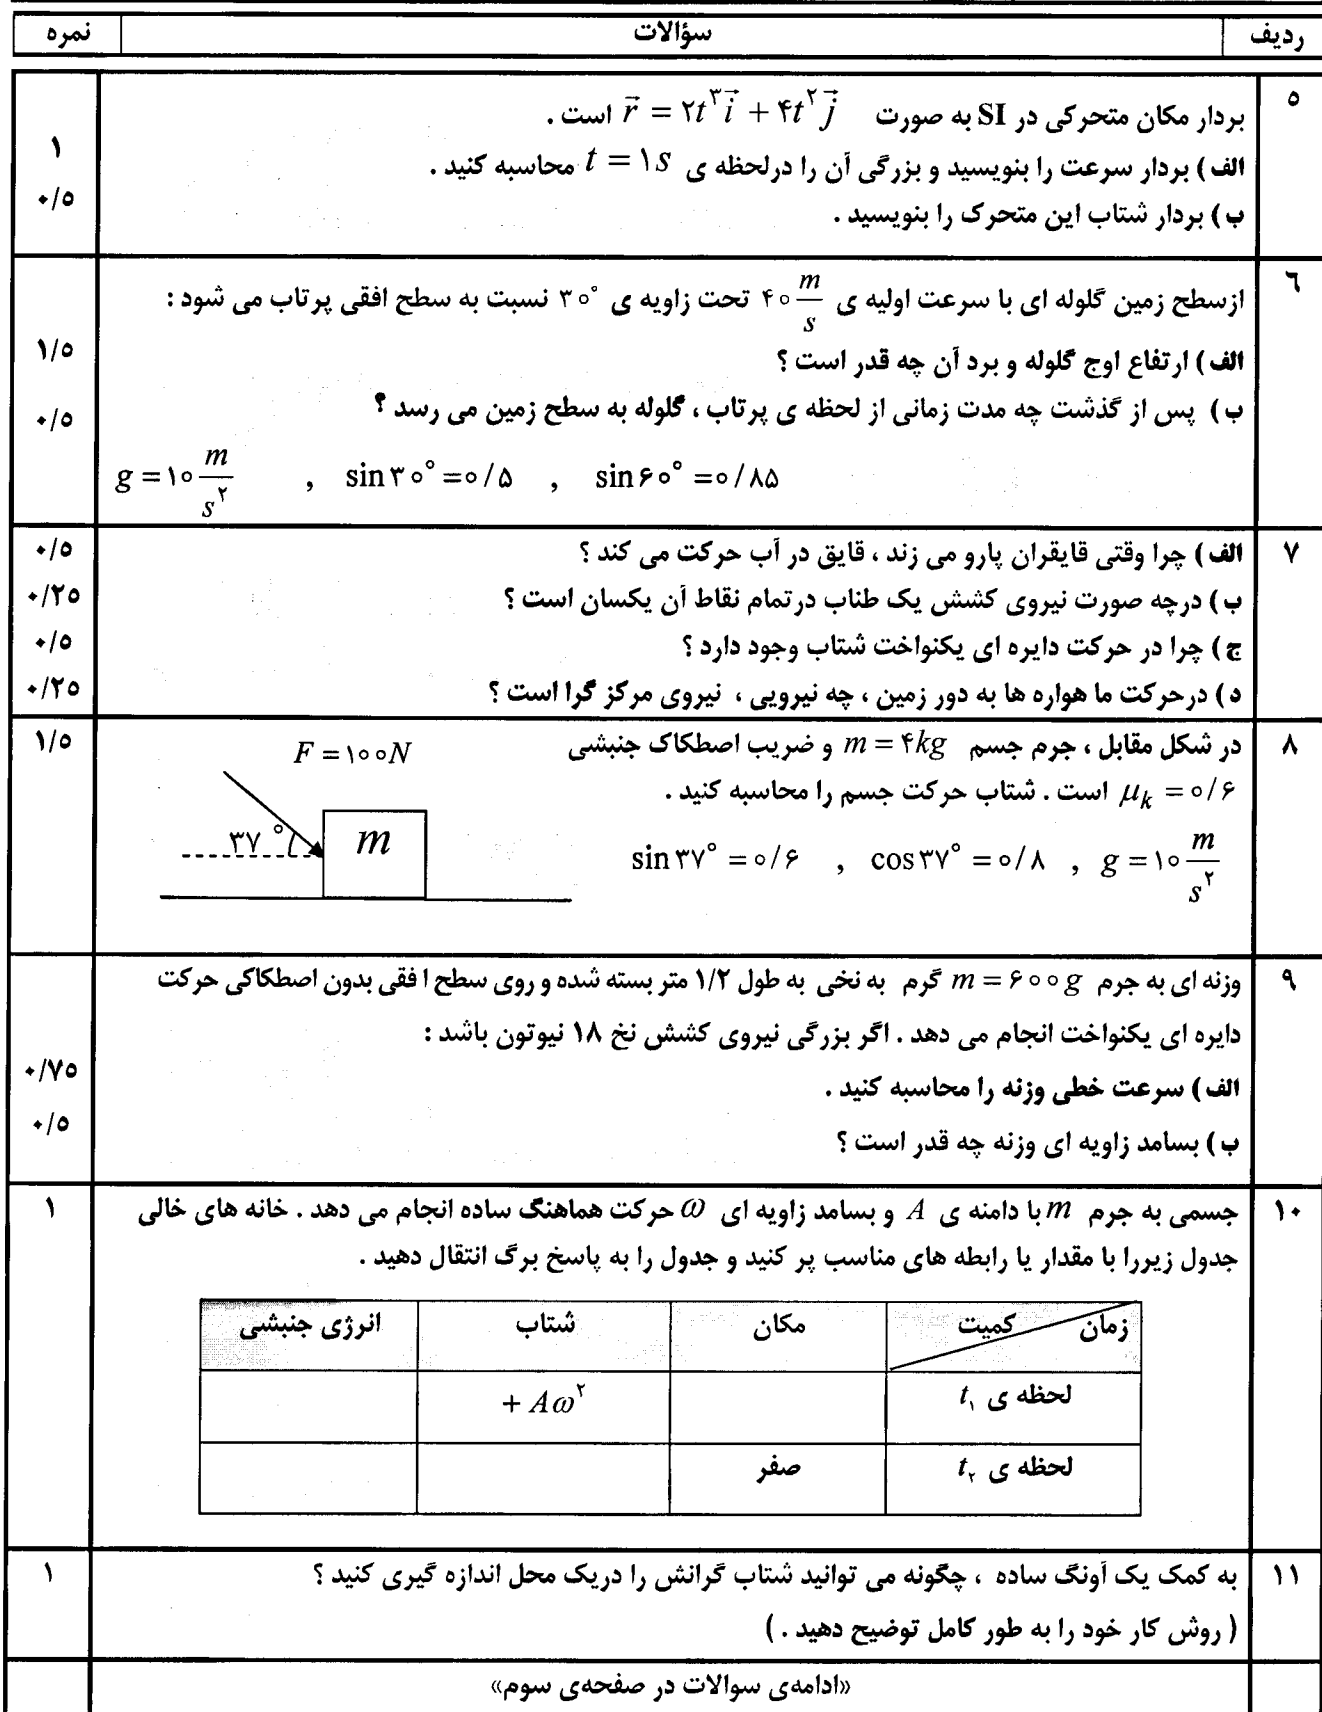 ردیف سؤالات نمره
۵ بردار مکان متحرکی در SI به صورت r⃗ = ۲t^۳ i⃗ + ۴t^۲ j⃗ است .
الف) بردار سرعت را بنویسید و بزرگی آن را درلحظه ی t = ۱s محاسبه کنید . ۱
ب) بردار شتاب این متحرک را بنویسید . ۰/۵
۶ ازسطح زمین گلوله ای با سرعت اولیه ی ۴۰ m/s تحت زاویه ی ۳۰° نسبت به سطح افقی پرتاب می شود :
الف) ارتفاع اوج گلوله و برد آن چه قدر است ؟ ۱/۵
ب) پس از گذشت چه مدت زمانی از لحظه ی پرتاب ، گلوله به سطح زمین می رسد ؟ ۰/۵
g = ۱۰ m/s^۲ , sin ۳۰° = ۰/۵ , sin ۶۰° = ۰/۸۵
۷ الف) چرا وقتی قایقران پارو می زند ، قایق در آب حرکت می کند ؟ ۰/۵
ب) درچه صورت نیروی کشش یک طناب درتمام نقاط آن یکسان است ؟ ۰/۲۵
ج) چرا در حرکت دایره ای یکنواخت شتاب وجود دارد ؟ ۰/۵
د) درحرکت ما هواره ها به دور زمین ، چه نیرویی ، نیروی مرکز گرا است ؟ ۰/۲۵
۸ در شکل مقابل ، جرم جسم m = ۴kg و ضریب اصطکاک جنبشی ۱/۵
μ_k = ۰/۶ است . شتاب حرکت جسم را محاسبه کنید .
sin ۳۷° = ۰/۶ , cos ۳۷° = ۰/۸ , g = ۱۰ m/s^۲
F = ۱۰۰N
۳۷° m
۹ وزنه ای به جرم m = ۶۰۰g گرم به نخی به طول ۱/۲ متر بسته شده و روی سطح ا فقی بدون اصطکاکی حرکت
دایره ای یکنواخت انجام می دهد . اگر بزرگی نیروی کشش نخ ۱۸ نیوتون باشد :
الف) سرعت خطی وزنه را محاسبه کنید . ۰/۷۵
ب) بسامد زاویه ای وزنه چه قدر است ؟ ۰/۵
۱۰ جسمی به جرم m با دامنه ی A و بسامد زاویه ای ω حرکت هماهنگ ساده انجام می دهد . خانه های خالی ۱
جدول زیررا با مقدار یا رابطه های مناسب پر کنید و جدول را به پاسخ برگ انتقال دهید .
زمان کمیت مکان شتاب انرژی جنبشی
لحظه ی t_۱ + Aω^۲
لحظه ی t_۲ صفر
۱۱ به کمک یک آونگ ساده ، چگونه می توانید شتاب گرانش را دریک محل اندازه گیری کنید ؟ ۱
( روش کار خود را به طور کامل توضیح دهید . )
«ادامه‌ی سوالات در صفحه‌ی سوم»